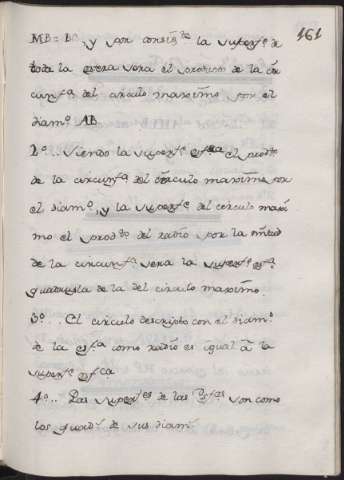 161
MB = B , y por consig.te la superf.e de
toda la esfera sera el producto de la cir
cunf.a del circulo maximo por el
diam.o AB
2.o Siendo la superf.e esf.ca el prod.to
de la circunf.a del circulo maximo por
el diam.o, y la superf.e del circulo maxi
mo el prod.to del radio por la mitad
de la circunf.a sera la superf.e esf.a
quadrupla de la del circulo maximo.
3.o .. El circulo descripto con el diam.o
de la esf.a como radio es igual à la
superf.e esf.ca
4.o .. Las superf.es de las esf.as son como
los quad.s de sus diam.s